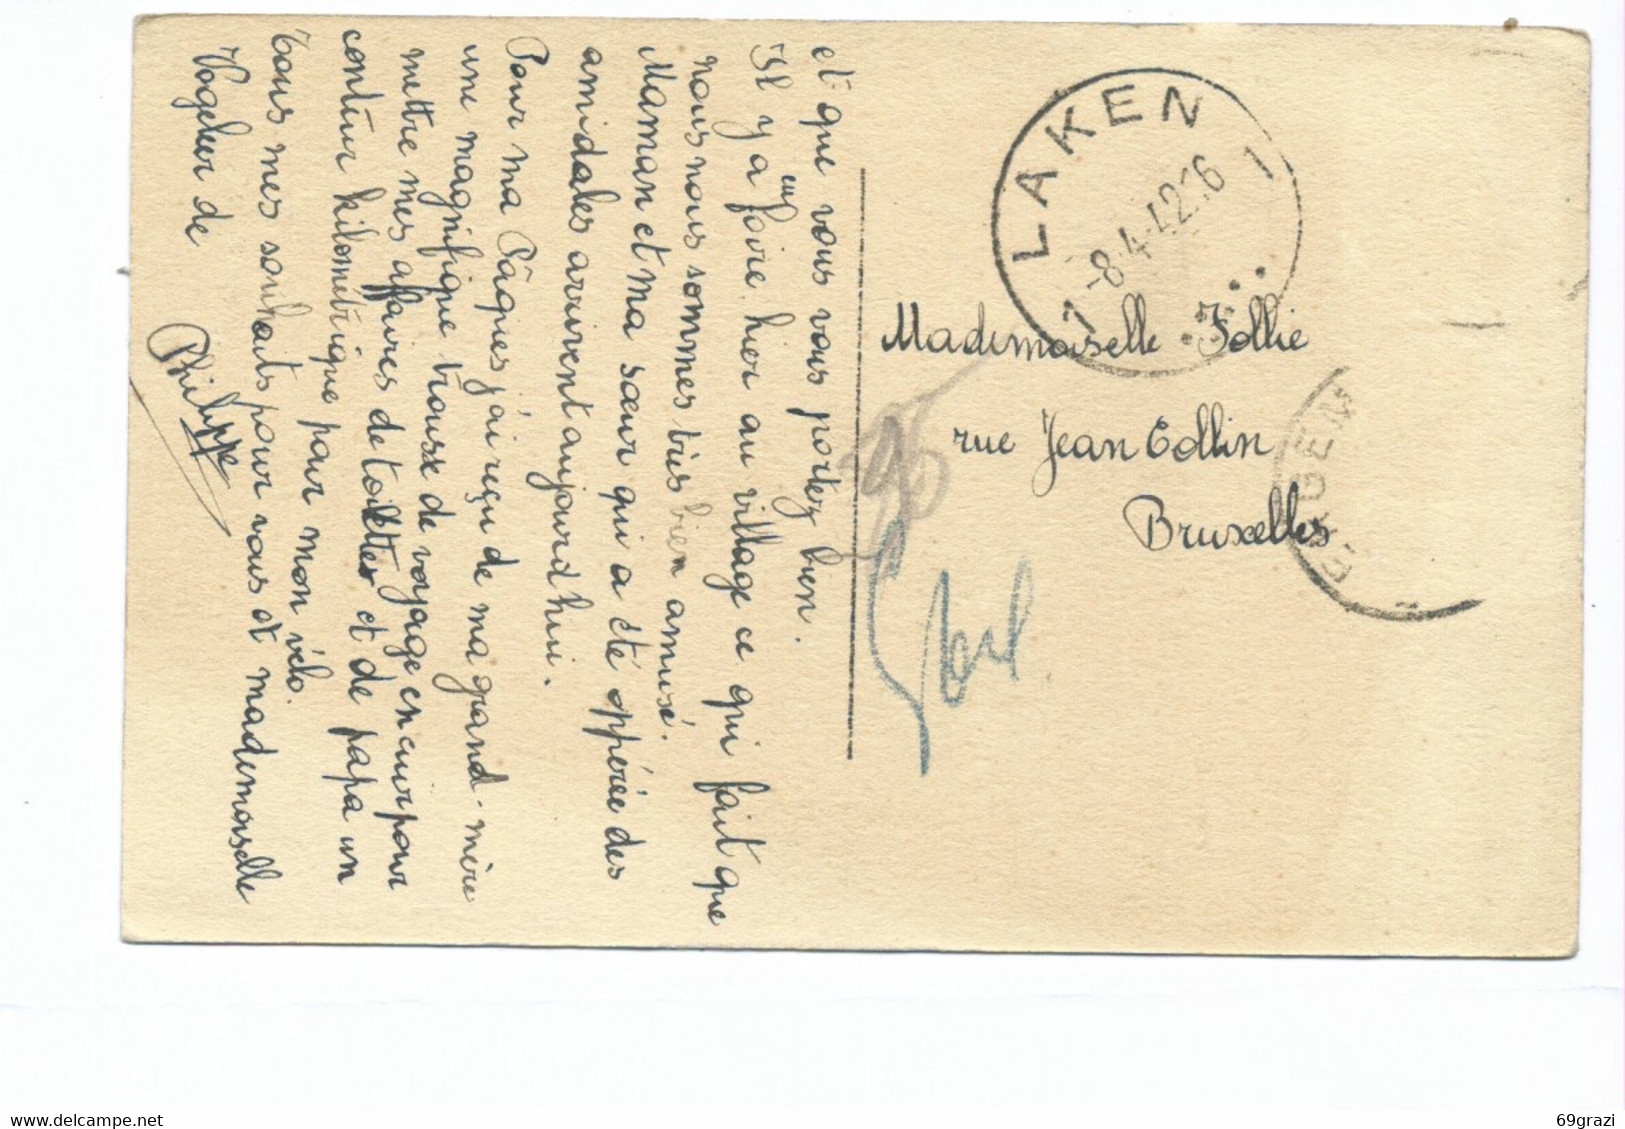 et que vous vous portez bien.
Il y a eu foire hier au village ce qui fait que
nous nous sommes très bien amusé.
Maman et ma sœur qui a été oppérée des
amidales arrivent aujourd'hui.
Pour ma Pâques j'ai reçu de ma grand-mère
une magnifique trousse de voyage en cuir pour
mettre mes affaires de toilettes et de papa un
conteur kilométrique pour mon vélo.
Tous mes souhaits pour vous et mademoiselle
de
Philippe
LAKEN
1 1
-8.4.42 16
Mademoiselle Jollie
rue Jean Collin
Bruxelles
69grazi